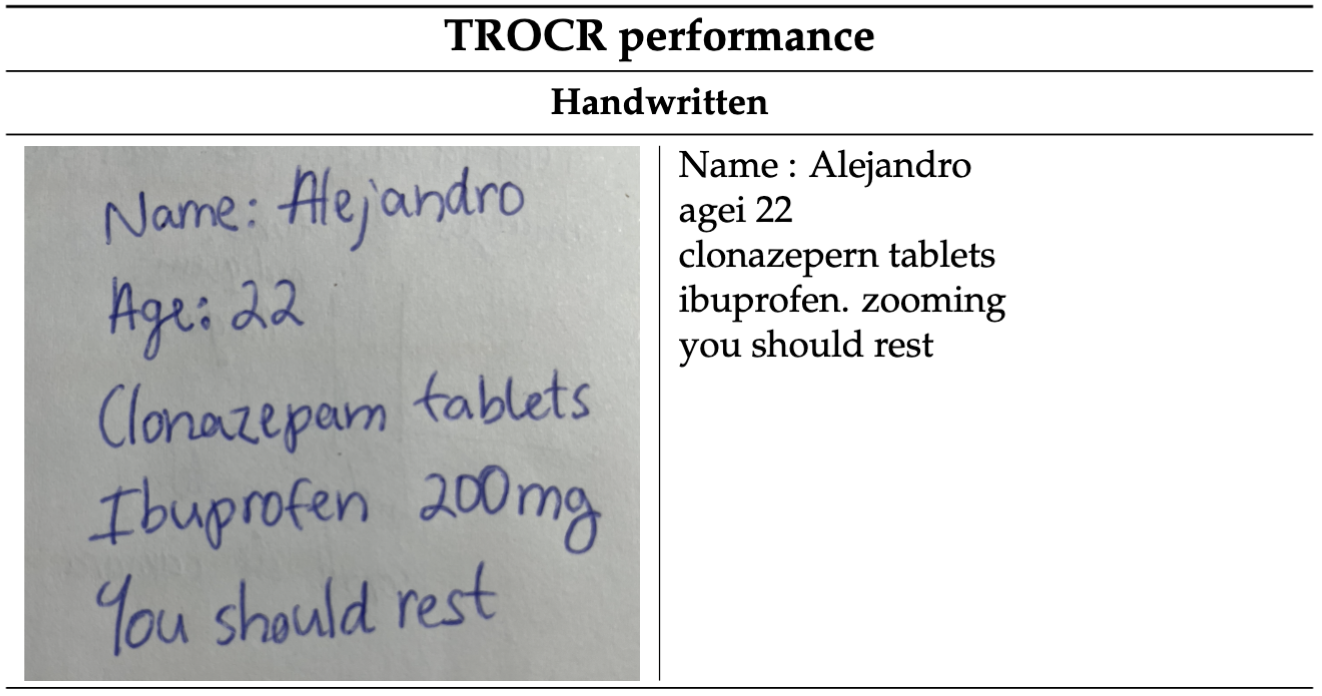 TROCR performance
Handwritten
Name: Alejandro
Age: 22
Clonazepam tablets
Ibuprofen 200mg
You should rest
Name : Alejandro
agei 22
clonazepern tablets
ibuprofen. zooming
you should rest